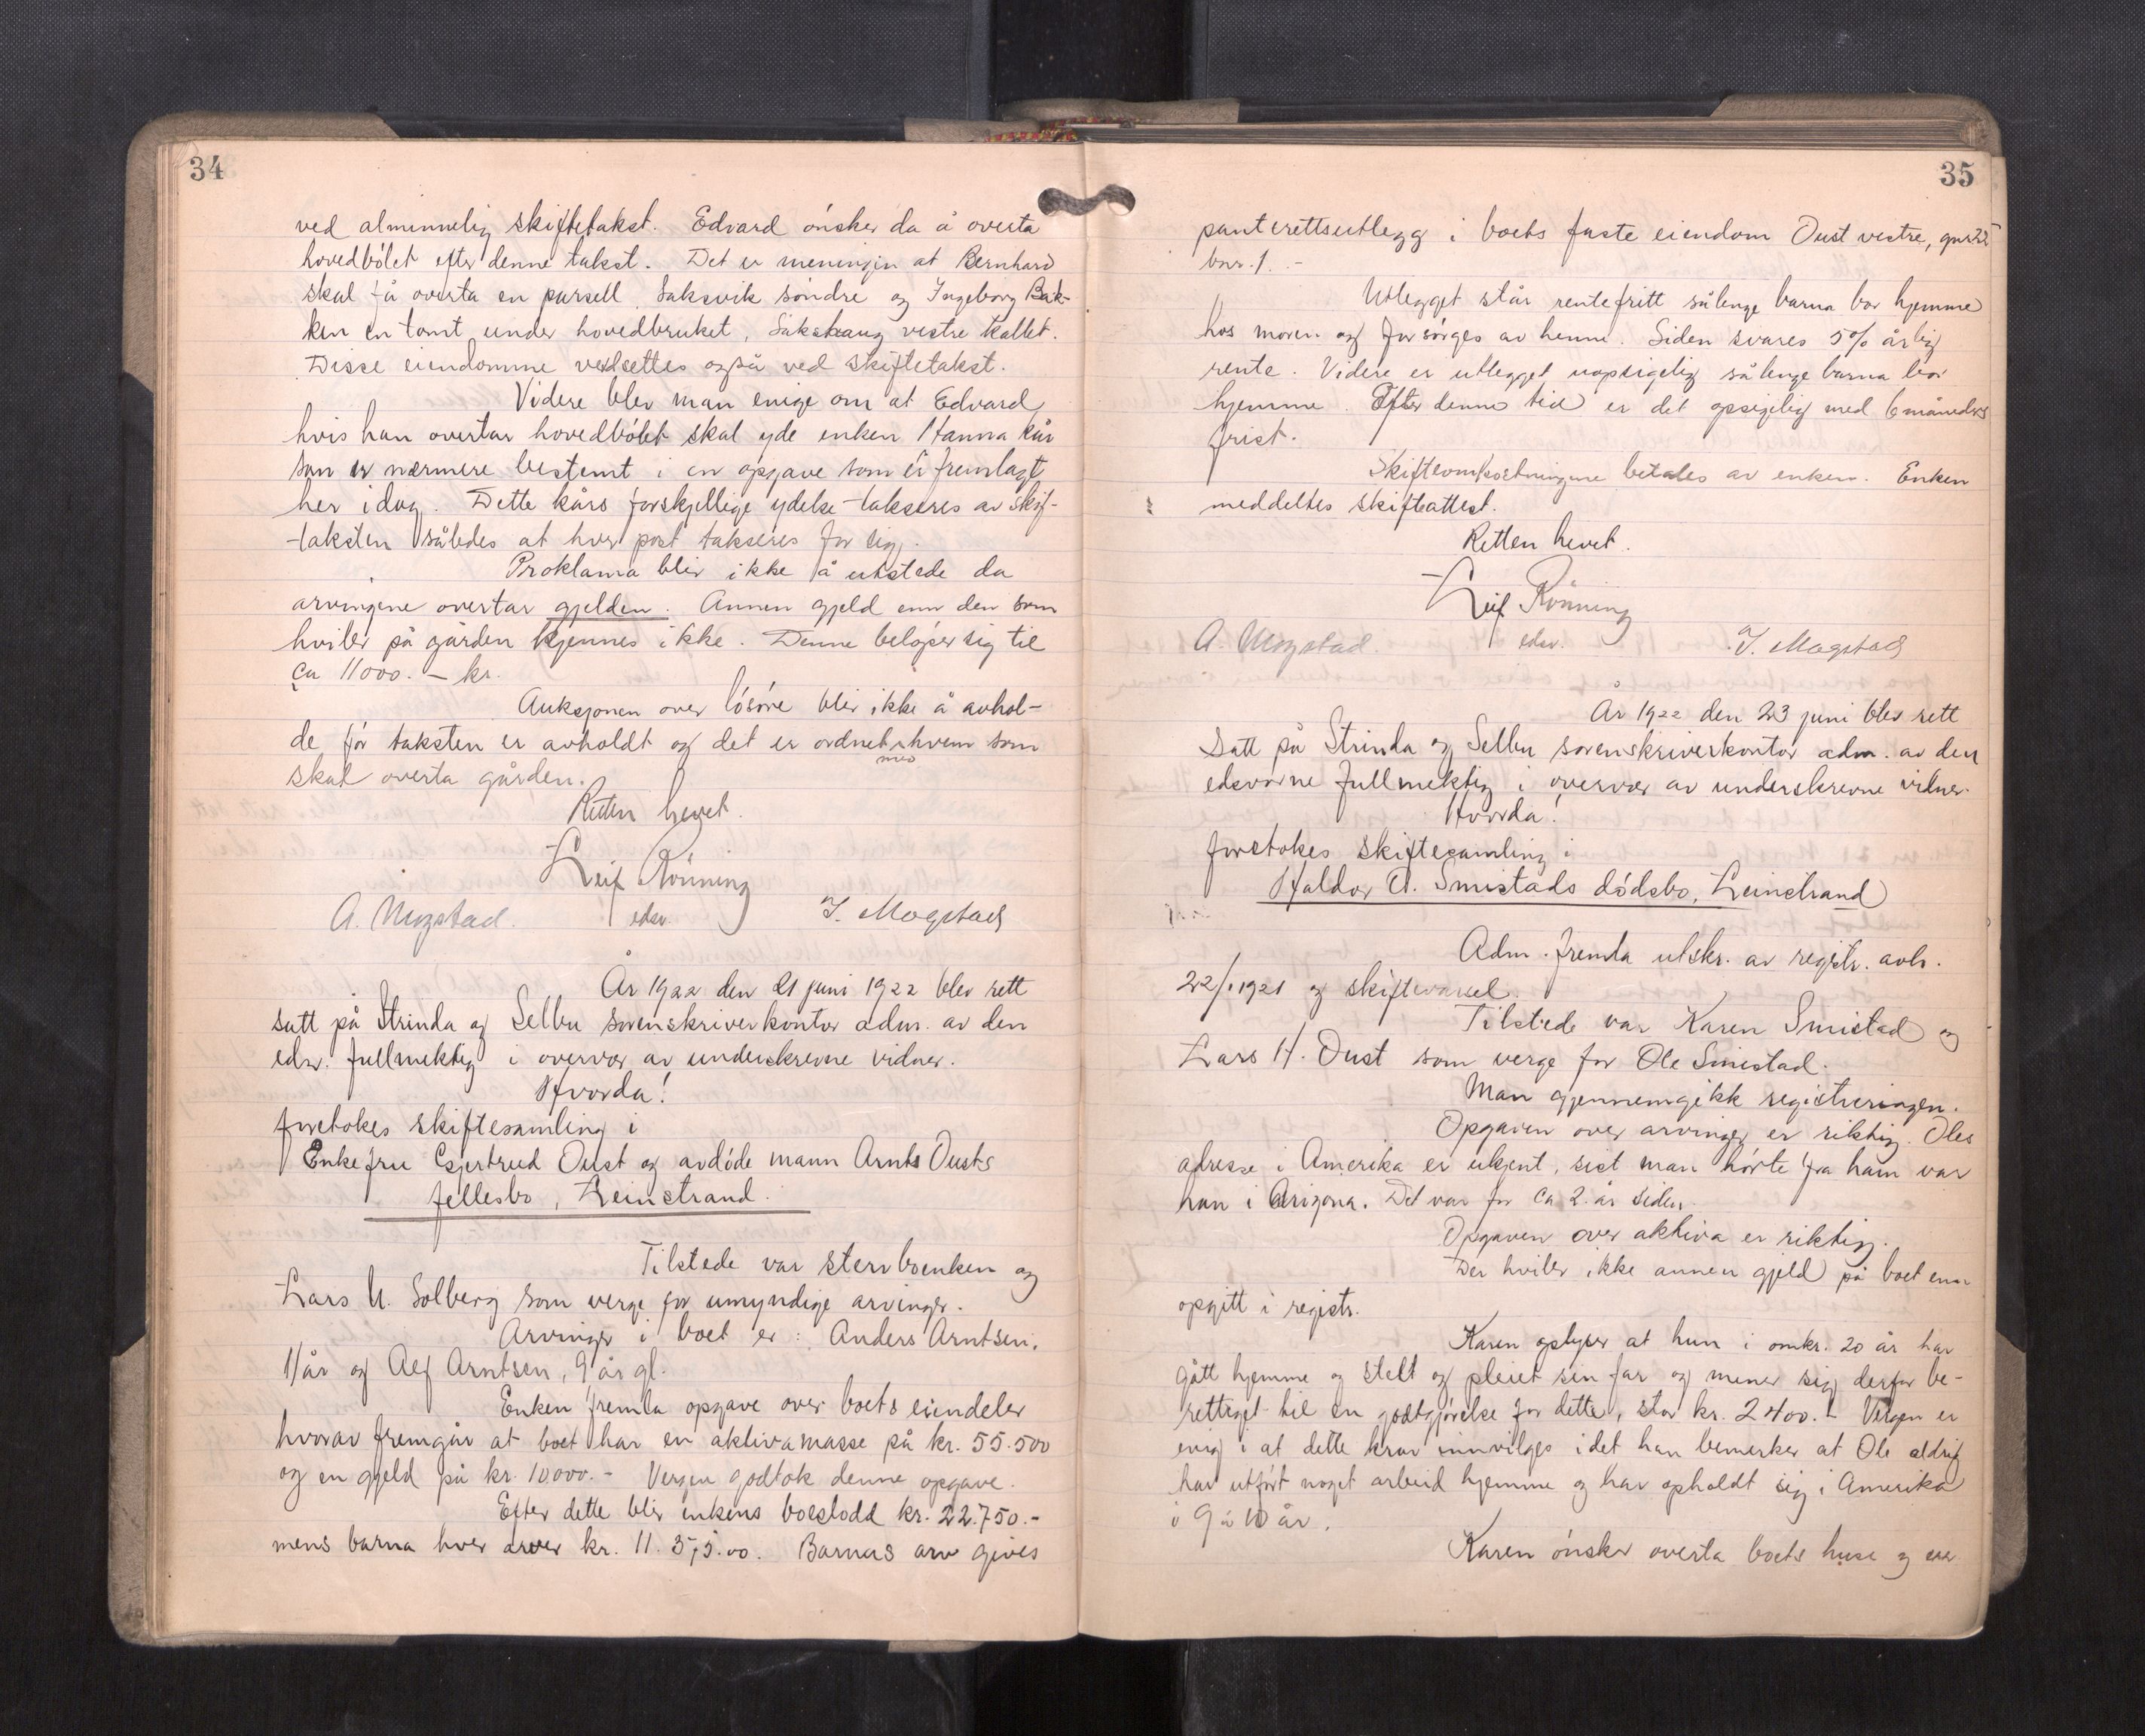 34
ved alminnelig skiftetakst. Edvard ønsker da å overta
hovedbølet efter denne takst. Det er meningen at Bernhard
skal få overta en parsell, Saksvik søndre og Ingeborg Bak-
ken en tomt under hovedbruket, Sakshaug vestre kallet.
Disse eiendomme verdsettes også ved skiftetakst.
Videre blev man enige om at Edvard
hvis han overtar hovedbølet skal yde enken Hanna kår
som er nærmere bestemt i en opgave som er fremlagt
her idag. Dette kårs forskjellige ydelse takseres av skif-
taksten således at hver post takseres for sig.
Proklama blir ikke å utstede da
arvingene overtar gjelden. Annen gjeld enn den som
hviler på gården kjennes ikke. Denne beløper sig til
ca 11000.- kr.
Auksjonen over løsøre blir ikke å avhol-
de før taksten er avholdt og det er ordnet med hvem som
skal overta gården.
Retten hevet.
Leif Rönning
edsv.
A. Mogstad.
I. Mogstad
År 1922 den 21 juni 1922 blev rett
satt på Strinda og Selbu sorenskriverkontor adm. av den
edsv. fullmektig i overvær av underskrevne vidner.
Hvorda!
foretokes skiftesamling i
Enkefru Gjertrud Oust og avdøde mann Arnts Ousts
fellesbo, Leinstrand.
Tilstede var stervboenken og
Lars U. Solberg som verge for umyndige arvinger.
Arvinger i boet er: Anders Arntsen,
11 år og Alf Arntsen, 9 år gl.
Enken fremla opgave over boets eiendeler
hvorav fremgår at boet har en aktivamasse på kr. 55.500
og en gjeld på kr. 10000.- Vergen godtok denne opgave.
Efter dette blir enkens boeslodd kr. 22.750.-
mens barna hver arver kr. 11.375.00. Barnas arv gives
35
panterettsutlegg i boets faste eiendom Oust vestre, gnr 22
bnr. 1. -
Utlegget står rentefritt sålenge barna bor hjemme
hos moren og forsørges av henne. Siden svares 5% årlig
rente. Videre er utlegget uopsigelig sålenge barna bor
hjemme. Efter denne tid er det opsigelig med 6 måneders
frist.
Skifteomkostningene betales av enken. Enken
meddeltes skifteattest.
Retten hevet.
Leif Rönning
edsv.
A. Mogstad.
I. Mogstad
År 1922 den 23 juni blev rett
satt på Strinda og Selbu sorenskriverkontor adm. av den
edsvorne fullmektig i overvær av underskrevne vidner.
Hvorda!
foretokes skiftesamling i
Haldor A. Smistads dødsbo, Leinstrand
Adm. fremla utskr. av registr. avh.
22/1 1921 og skiftevarsel.
Tilstede var Karen Smistad og
Lars H. Oust som verge for Ole Smistad.
Man gjennemgikk registreringen.
Opgaven over arvinger er riktig. Oles
adresse i Amerika er ukjent, sist man hørte fra ham var
han i Arizona. Det var for ca 2 år siden.
Opgaven over aktiva er riktig.
Der hviler ikke annen gjeld på boet enn
opgitt i registr.
Karen oplyser at hun i omkr. 20 år har
gått hjemme og stelt og pleiet sin far og mener sig derfor be-
rettiget til en godtgjørelse for dette, stor kr. 2400.- Vergen er
enig i at dette krav innvilges idet han bemerker at Ole aldrig
har utført noget arbeid hjemme og har opholdt sig i Amerika
i 9 à 10 år.
Karen ønsker overta boets huse og